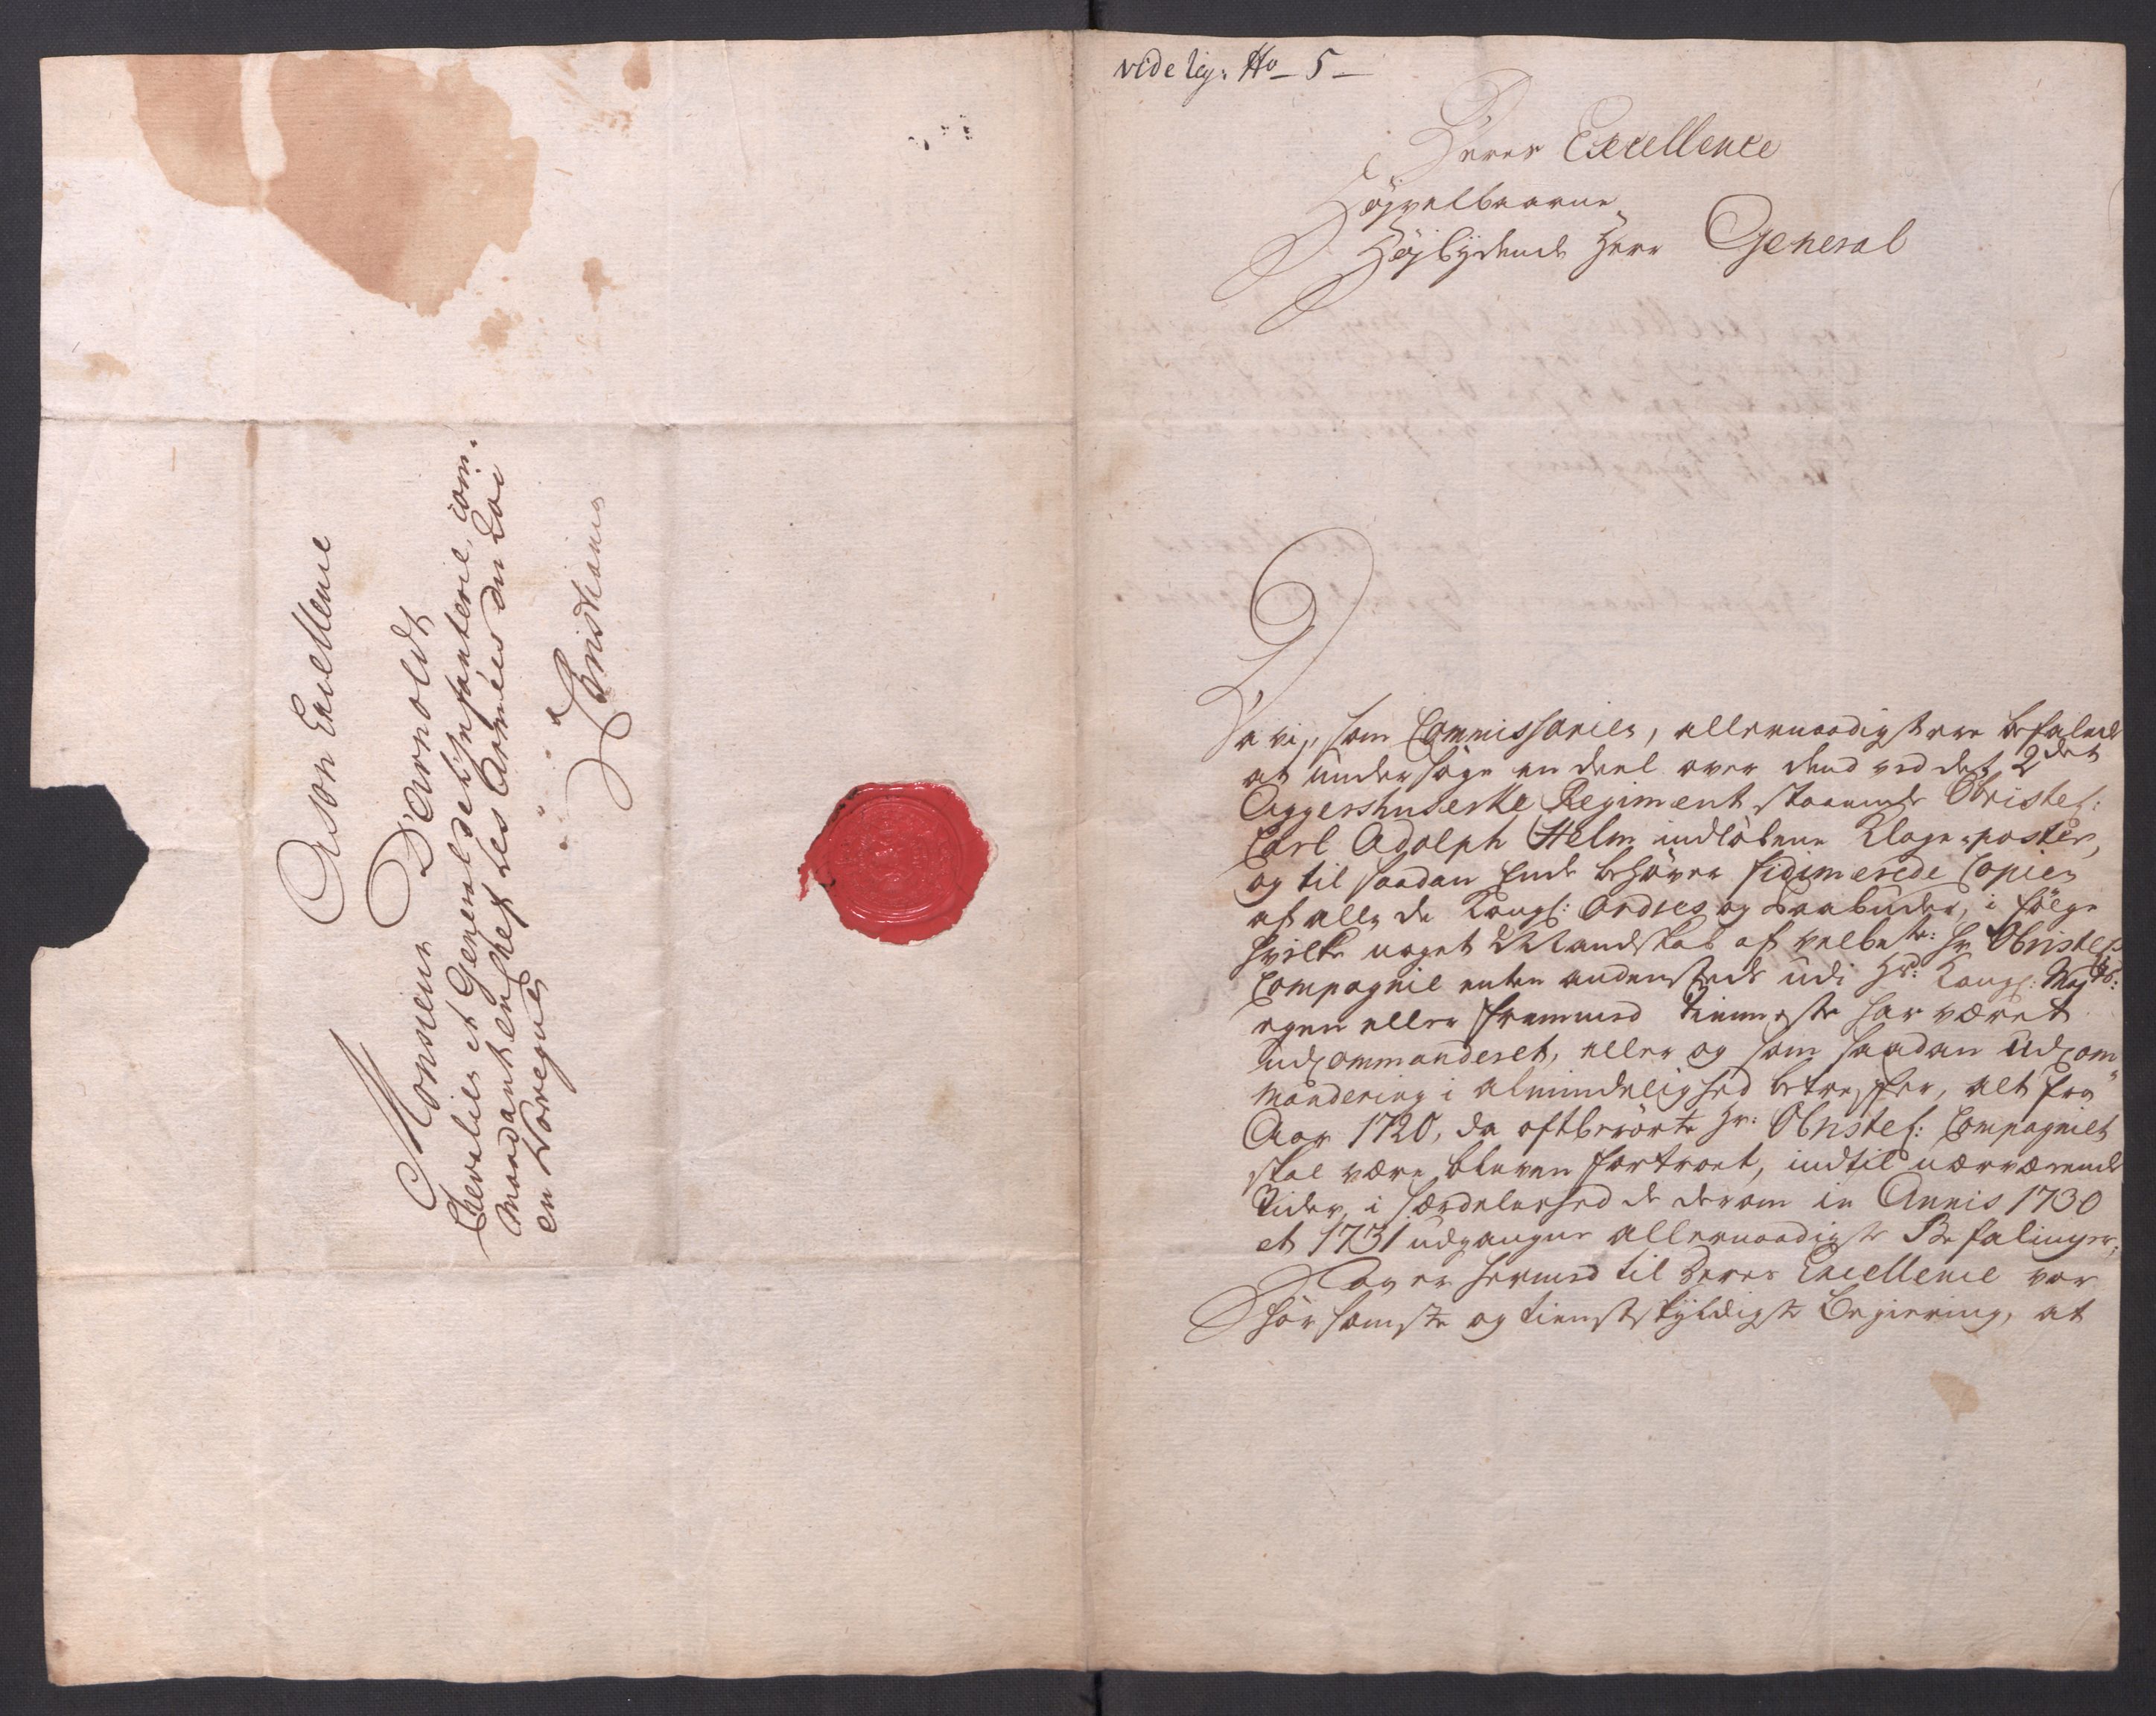 A son Excellence
Monsieur D'Arnoldt
Chevalier et General de l'Infanterie, com-
mandant en chef les Armées du Roi
en Norvegue
à Christiania
vide lig: No 5
Deres Excellence
Höyvelbaarne
Höybydende Herr General
Da vi, som Commissarier, allernaadigst ere befalede
at undersöge en deel over dend ved det 2det
Aggershuuske Regiment staaende Obristel:
Carl Adolph Helm indlöbene Klage-poster,
og til saadan Ende behöver fidimerede Copier
af alle de Kongl: Ordres og Paabuder, i fölge
hvilke noget Mandskab af velbete: Hr Obristel:
Compagnie enten andensteds udi Hs: Kongl: Mayts:
egen eller fremmed tienneste har været
udcommanderet, eller og som saadan udcom-
mandering i almindelighed betreffer, alt fra
Aar 1720, da oftberörte Hr: Obristel: Compagniet
skal være bleven fortroet, indtil nærværende
Tider, i særdeleshed de derom in Annis 1730
et 1731 udgangne allernaadigste Befalinger;
Saa er hermed til Deres Excellence vor
hörsomste og tienstskyldigste Begiering, at